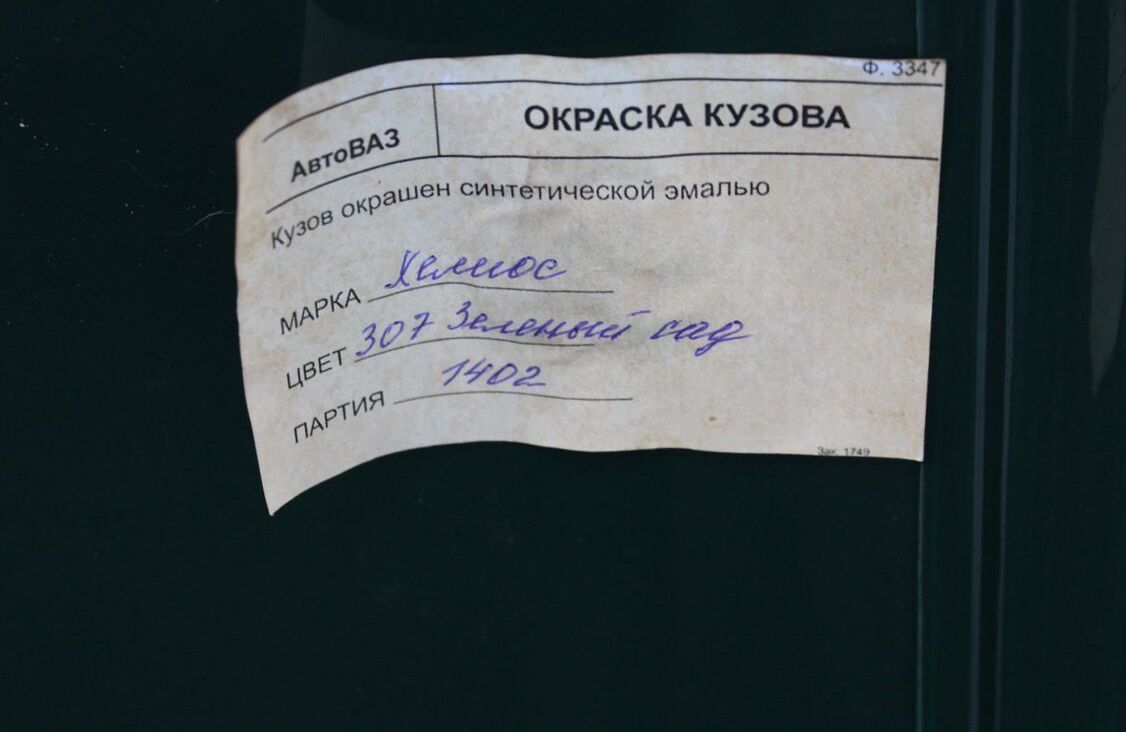 Ф. 3347
АвтоВАЗ
ОКРАСКА КУЗОВА
Кузов окрашен синтетической эмалью
МАРКА Хелиос
ЦВЕТ 307 Зеленый сад
ПАРТИЯ 1402
Зак. 1749